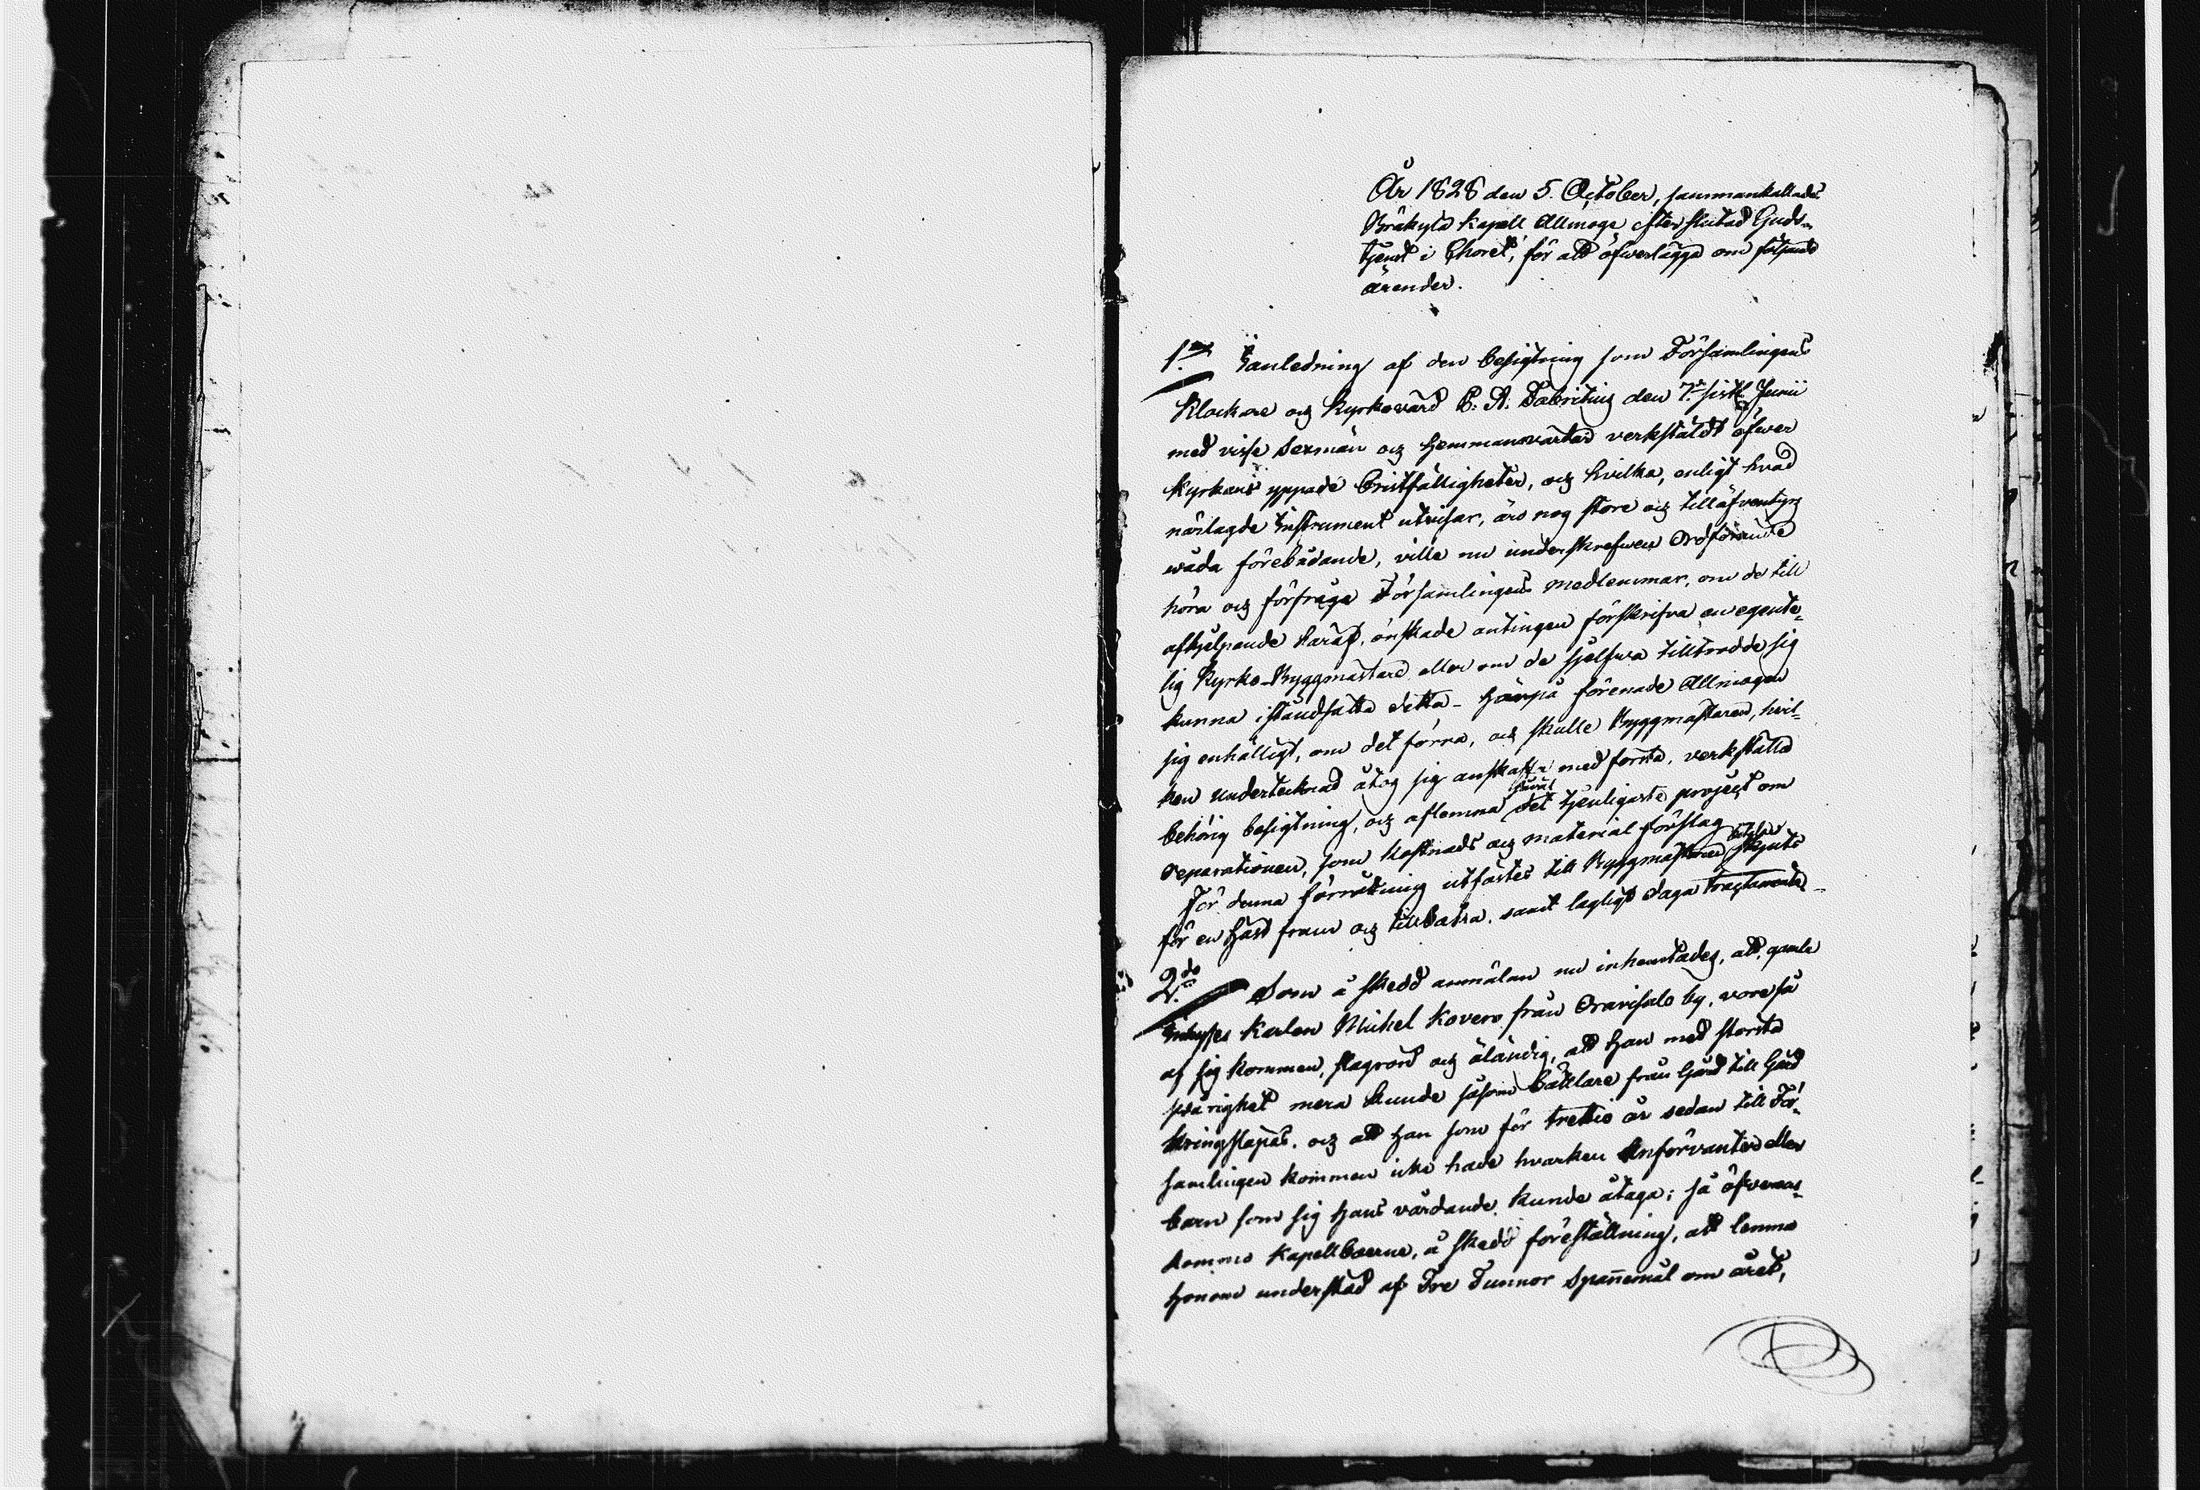 År 1828 den 5. October, sammankallades
Bräkylä Kapell Allmoge efter slutad Guds-
tjenst i Choret, för att öfverlägga om följande
ärender.
1.mo I anledning af den besigtning som Församlingens
Klockare och Kyrkovärd C. A. Fabritius den 7.de sistl. Junii
med visse Sexmän och Hemmansvärdar verkstäldt öfver
Kyrkans yppade bristfälligheter, och hvilka, enligt hvad
närlagde Instrument utvisar, äro nog store och till äfventyrs
våda förebådande, ville nu underskrefven Ordförande
höra och förfråga Församlingens medlemmar, om de till
afhjelpande häraf, önskade antingen förskrifva en egente-
lig Kyrko-Byggmästare eller om de sjelfva tilltrodde sig
kunna iståndsätta detta – Härpå förenade Allmogen
sig enhälligt, om det förra, och skulle Byggmästaren, hvil-
ken undertecknad åtog sig anskaffa med första, verkställa
behörig besigtning, och aflemna såväl det tjenligaste project om
reparationen, som kostnads och material förslag
För denna förrättning utfästes till Byggmästaren betalas skjuts
för en häst fram och tillbaka, samt lagligt daga tractamente –
2.do Som å skedd anmälan nu inhemtades, att gamla
Inhyses Karlen Michel Kovero från Oravisalo by, vore så
af sig kommen, slagrörd och eländig, att han med största
svårighet mera kunde såsom bättlare från Gård till Gård
kringsläpas, och att han som för trettio år sedan till För-
samlingen kommen icke hade hvarken Anförvanter eller
barn som sig hans vårdande kunde åtaga; så öfverens-
kommo Kapellboerne, å skedd föreställning, att lemna
honom understöd af Tre Tunnor Spannemål om året,